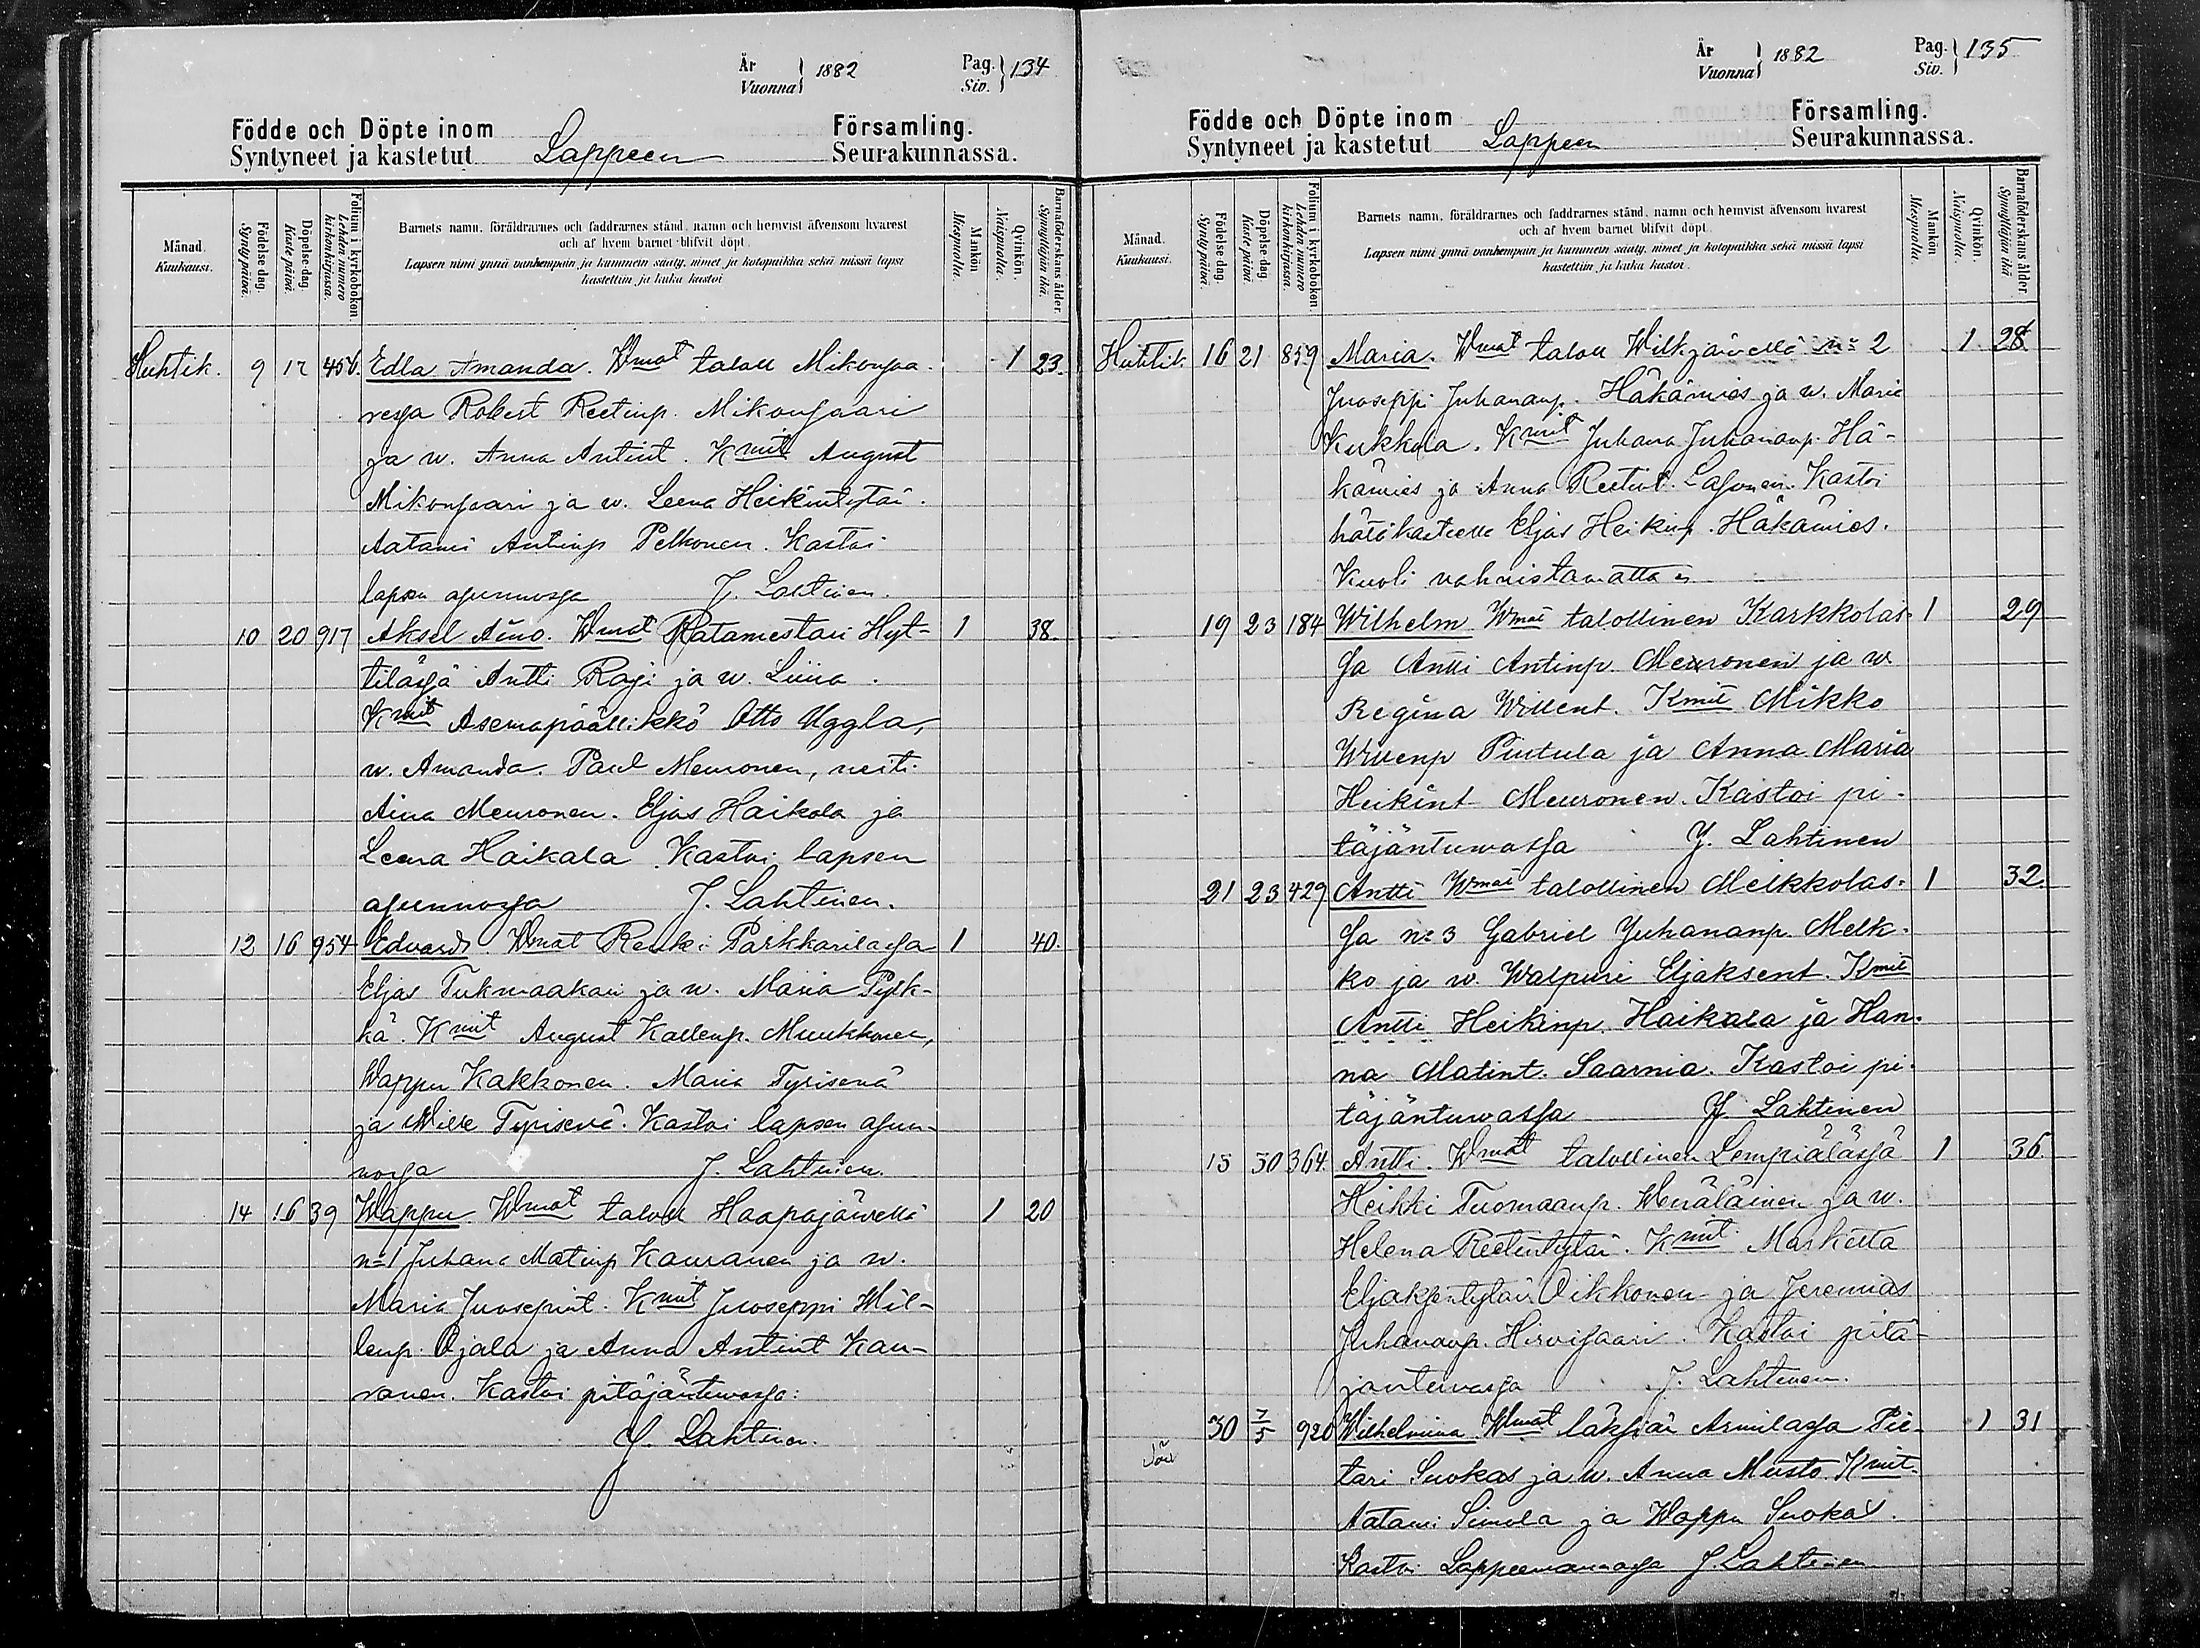 År
Vuonna 1882
Pag.
Siv. 134
Födde och Döpte inom Församling.
Syntyneet ja kastetut Lappeen Seurakunnassa.
Månad.
Kuukausi.
Födelse dag.
Synty päivä.
Döpelse-dag.
Kaste päivä.
Folium i kyrkoboken.
Lehden numero
kirkonkirjassa.
Barnets namn, föräldrarnes och faddrarnes stånd, namn och hemvist äfvensom hvarest
och af hvem barnet blifvit döpt.
Lapsen nimi ynnä vanhempain ja kummein sääty, nimet ja kotopaikka sekä missä lapsi
kastettiin ja kuka kastoi.
Mankön
Miespuolia.
Qvinkön.
Naispuolia.
Barnaföderskans ålder.
Synnyttäjän ikä
Huhtik. 9 17 456. Edla Amanda. Wmat taloll Mikonsaa- 1 23.
ressa Robert Reetinp. Mikonsaari
ja w. Anna Antint. Kmit August
Mikonsaari ja w. Leena Heikintytär.
Aatami Antinp Pelkonen. Kastoi
lapsen asunnossa J. Lahtinen.
10 20 917 Aksel Aino. Wmat Ratamestari Hyt- 1 38.
tilässä Antti Raji ja w. Liina.
Kmit Asemapäällikkö Otto Uggla,
w. Amanda. Paul Meuronen, neiti
Aina Meuronen. Eljas Haikola ja
Leena Haikala Kastoi lapsen
asunnossa J. Lahtinen.
12 16 954 Edvard. Wmat Renki Parkkarilassa 1 40.
Eljas Tukmaakari ja w. Maria Pylk-
kä. Kmit August Kallenp. Muukkonen,
Wappu Kakkonen. Maria Tyrisevä
ja Wille Tyrisevä. Kastoi lapsen asun-
nossa J. Lahtinen.
14 16 39 Wappu. Wmat taloll Haapajäwellä 1 20
n=1 Juhana Matinp Kauranen ja w.
Maria Juosepint. Kmit Juoseppi Wil-
lenp. Ojala ja Anna Antint Kau-
ranen. Kastoi pitäjäntuwassa:
J. Lahtinen.
År
Vuonna 1882
Pag.
Siv. 135
Födde och Döpte inom Församling.
Syntyneet ja kastetut Lappeen Seurakunnassa.
Månad.
Kuukausi.
Födelse dag.
Synty päivä.
Döpelse dag.
Kaste päivä.
Folium i kyrkoboken.
Lehden numero
kirkonkirjassa.
Barnets namn, föräldrarnes och faddrarnes stånd, namn och hemvist äfvensom hvarest
och af hvem barnet blifvit döpt.
Lapsen nimi ynnä vanhempain ja kummein sääty, nimet ja kotopaikka sekä missä lapsi
kastettiin ja kuka kastoi.
Mankön
Miespuolia.
Qvinkön.
Naispuolia.
Barnaföderskans ålder.
Synnyttäjän ikä
Huhtik. 16 21 859 Maria. Wmat taloll Wilkjärvellä n=2 1 28
Juoseppi Juhananp. Häkämies ja w. Maria
Kukkola. Kmit Juhana Juhananp. Hä-
kämies ja Anna Reetint. Lasonen. Kastoi
hätäkasteella Eljas Heikinp. Häkämies.
Kuoli vahvistamatta
19 23 184 Wilhelm Wmat talollinen Karkkolas- 1 29
sa Antti Antinp. Meuronen ja w
Regina Willent. Kmit Mikko
Willenp Pintula ja Anna Maria
Heikint Meuronen. Kastoi pi-
täjäntuwassa J. Lahtinen
21 23 429 Antti Wmat talollinen Melkkolas- 1 32.
sa n=3 Gabriel Juhananp. Melk-
ko ja w. Walpuri Eljaksent. Kmit
Antti Heikinp. Haikala ja Han-
na Matint. Saarnia. Kastoi pi-
täjäntuwassa J. Lahtinen
15 30 364. Antti. Wmat talollinen Lempiälässä 1 36
Heikki Tuomaanp. Wenäläinen ja w.
Helena Reetintytär. Kmit Marketta
Eljaksentytär Oikkonen ja Jeremias
Juhananp. Hirvisaari. Kastoi pitä-
jäntuvassa J. Lahtinen.
30 7/5 920 Wilhelmina Wmat läksiäi Armilassa Pie- 1 31
tari Suokas ja w. Anna Musto. Kmit.
Aatami Simola ja Wappu Suokas.
Kastoi Lappeenrannassa J. Lahtinen